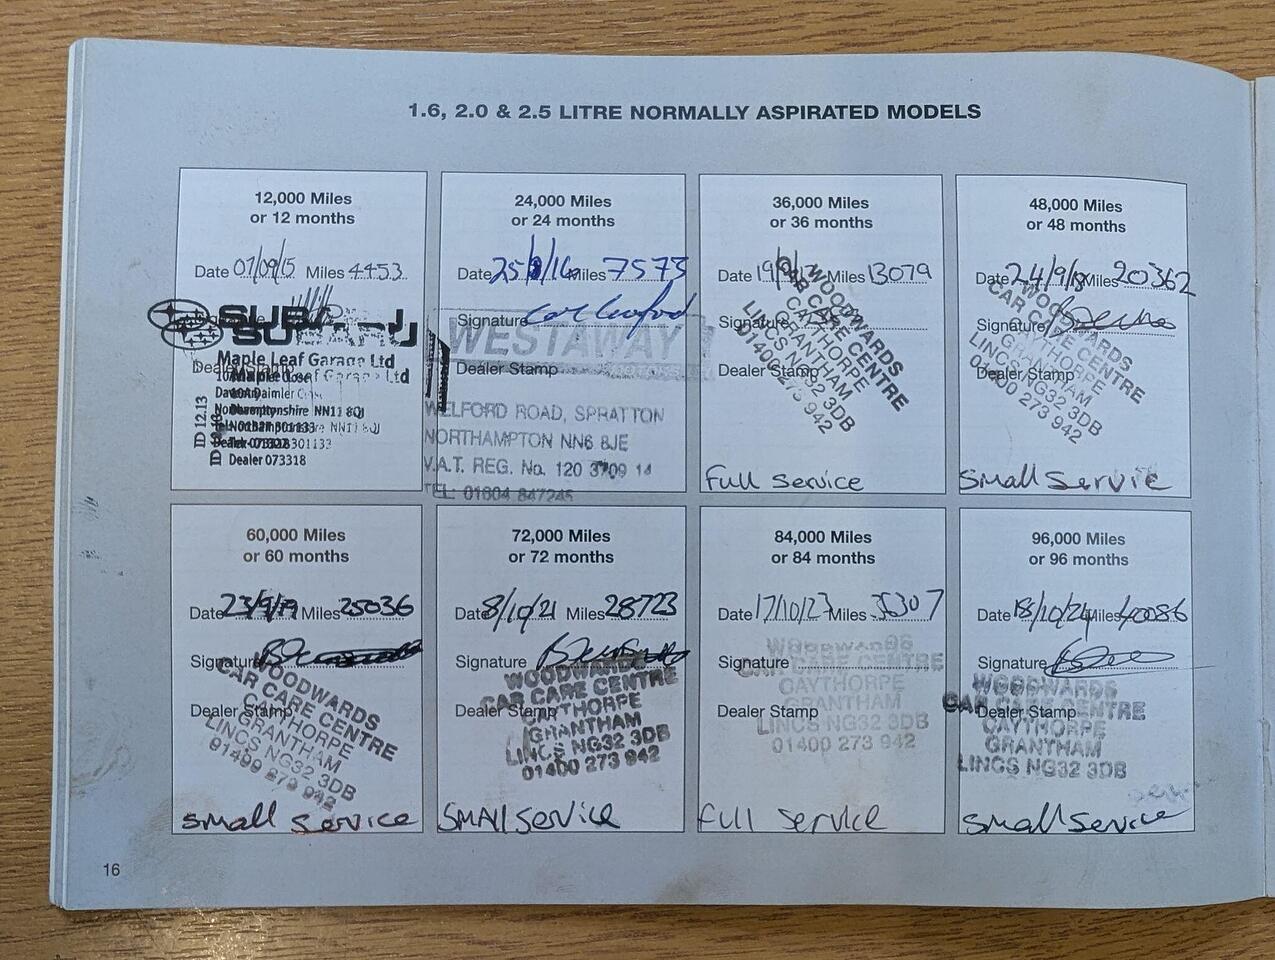 1.6, 2.0 & 2.5 LITRE NORMALLY ASPIRATED MODELS
12,000 Miles
or 12 months
Date 07/09/15 Miles 4453
SUBARU
Maple Leaf Garage Ltd
Dealer Stamp
Dealer 073318
ID 12.13
24,000 Miles
or 24 months
Date 25/8/16 Miles 7573
Signature
WESTAWAY
Dealer Stamp
WELFORD ROAD, SPRATTON
NORTHAMPTON NN6 8JE
V.A.T. REG. No. 120 3709 14
TEL: 01604 847245
36,000 Miles
or 36 months
Date 19/9/17 Miles 13079
Signature
Dealer Stamp
WOODWARDS
CAR CARE CENTRE
CAYTHORPE
GRANTHAM
LINCS NG32 3DB
01400 273 942
Full service
48,000 Miles
or 48 months
Date 24/9/18 Miles 20362
Signature
Dealer Stamp
WOODWARDS
CAR CARE CENTRE
CAYTHORPE
GRANTHAM
LINCS NG32 3DB
01400 273 942
Small Service
60,000 Miles
or 60 months
Date 23/9/19 Miles 25036
Signature
Dealer Stamp
WOODWARDS
CAR CARE CENTRE
CAYTHORPE
GRANTHAM
LINCS NG32 3DB
01400 273 942
small service
72,000 Miles
or 72 months
Date 8/10/21 Miles 28723
Signature
Dealer Stamp
WOODWARDS
CAR CARE CENTRE
CAYTHORPE
GRANTHAM
LINCS NG32 3DB
01400 273 942
SMAll service
84,000 Miles
or 84 months
Date 17/10/23 Miles 36307
Signature
Dealer Stamp
WOODWARDS
CAR CARE CENTRE
CAYTHORPE
GRANTHAM
LINCS NG32 3DB
01400 273 942
full service
96,000 Miles
or 96 months
Date 18/10/24 Miles 40086
Signature
Dealer Stamp
WOODWARDS
CAR CARE CENTRE
CAYTHORPE
GRANTHAM
LINCS NG32 3DB
small service
16